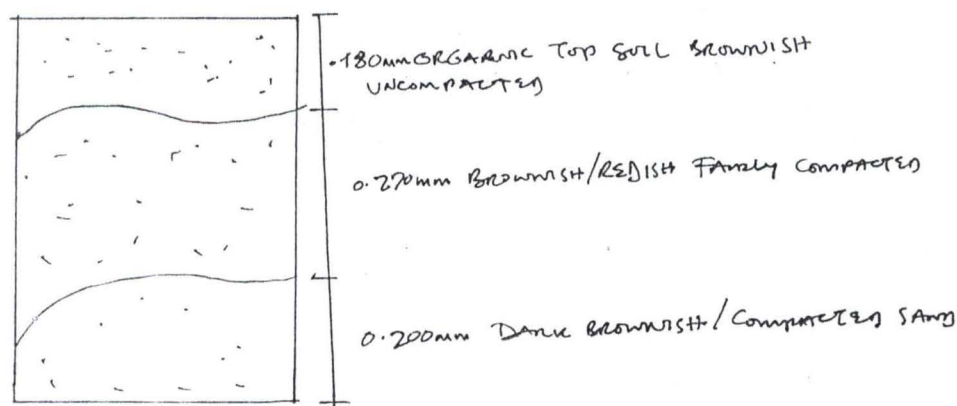 .180mm ORGARNIC TOP SOIL BROWNISH
UNCOMPACTED
0.270mm BROWNISH/REDISH FAIRLY COMPACTED
0.200mm DARK BROWNISH/COMPACTED SAND